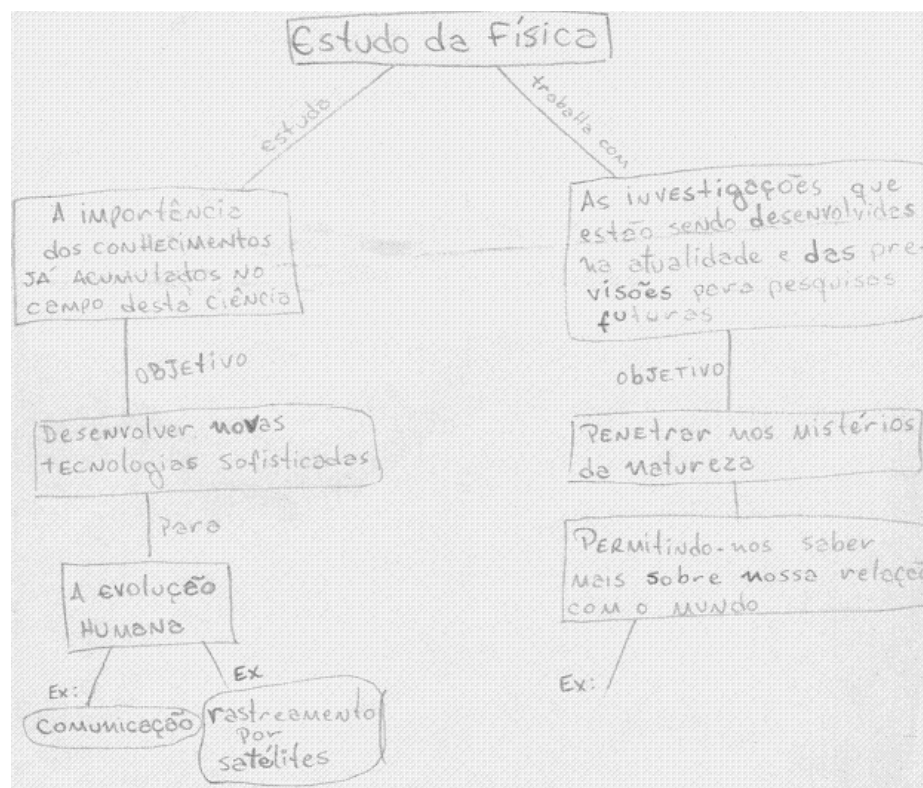 Estudo da Física
estudo
trabalha com
A importância
dos conhecimentos
já acumulados no
campo desta ciência
As investigações que
estão sendo desenvolvidas
na atualidade e das pre-
visões para pesquisas
futuras
objetivo
objetivo
Desenvolver novas
tecnologias sofisticadas
Penetrar nos mistérios
da natureza
Para
A evolução
humana
Permitindo-nos saber
mais sobre nossa relação
com o mundo
Ex:
Ex
Ex:
Comunicação
rastreamento
por
satélites